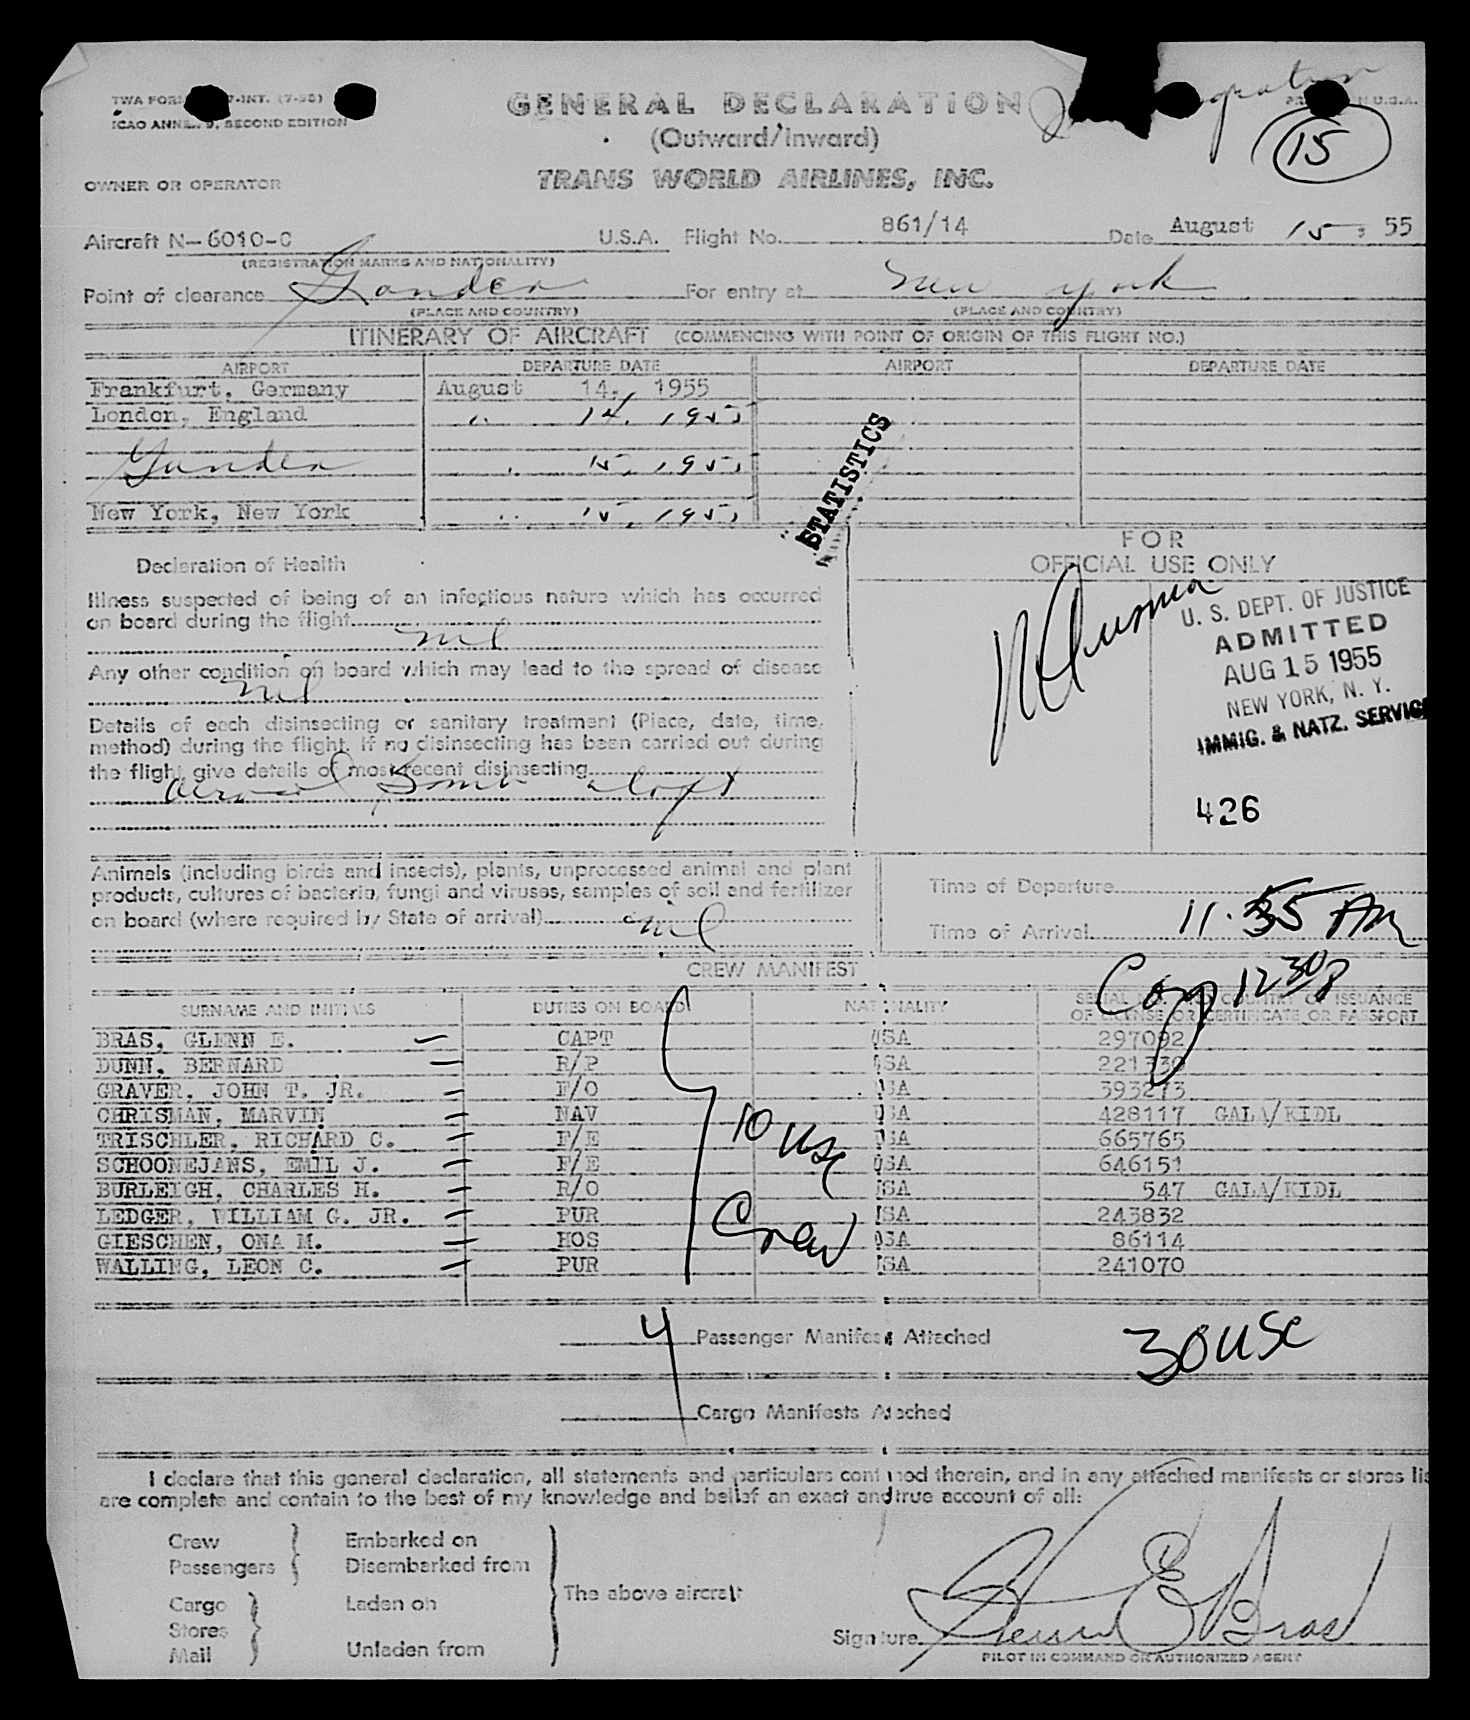 GENERAL DECLARATION
(Outward/Inward)
TRANS WORLD AIRLINES, INC.
15
TWA FORM -INT. (7-55)
ICAO ANNEX 9, SECOND EDITION
OWNER OR OPERATOR
Aircraft N-6010-C U.S.A. Flight No. 861/14 Date August 15, 55
(REGISTRATION MARKS AND NATIONALITY)
Point of clearance Gander For entry at New York
(PLACE AND COUNTRY) (PLACE AND COUNTRY)
ITINERARY OF AIRCRAFT (COMMENCING WITH POINT OF ORIGIN OF THIS FLIGHT NO.)
AIRPORT DEPARTURE DATE AIRPORT DEPARTURE DATE
Frankfurt, Germany August 14, 1955
London, England " 14, 1955
Gander " 15, 1955
New York, New York " 15, 1955
STATISTICS
Declaration of Health
Illness suspected of being of an infectious nature which has occurred
on board during the flight nil
Any other condition on board which may lead to the spread of disease
nil
Details of each disinsecting or sanitary treatment (Place, date, time,
method) during the flight. If no disinsecting has been carried out during
the flight give details of most recent disinsecting
aerosol Bomb
FOR
OFFICIAL USE ONLY
U. S. DEPT. OF JUSTICE
ADMITTED
AUG 15 1955
NEW YORK, N. Y.
IMMIG. & NATZ. SERVICE
426
Animals (including birds and insects), plants, unprocessed animal and plant
products, cultures of bacteria, fungi and viruses, samples of soil and fertilizer
on board (where required by State of arrival) nil
Time of Departure
Time of Arrival 11.35 AM
1230P
CREW MANIFEST
SURNAME AND INITIALS DUTIES ON BOARD NATIONALITY SERIAL NO. AND COUNTRY OF ISSUANCE
OF LICENSE OR CERTIFICATE OR PASSPORT
BRAS, GLENN E. CAPT USA 297092
DUNN, BERNARD R/P USA 221330
GRAVER, JOHN T. JR. F/O USA 393273
CHRISMAN, MARVIN NAV USA 428117 GALA/KIDL
TRISCHLER, RICHARD C. F/E USA 665765
SCHOONEJANS, EMIL J. F/E USA 646151
BURLEIGH, CHARLES H. R/O USA 547 GALA/KIDL
LEDGER, WILLIAM G. JR. PUR USA 243832
GIESCHEN, ONA M. HOS USA 86114
WALLING, LEON C. PUR USA 241070
10 USC
Crew
4 Passenger Manifest Attached 30 USC
Cargo Manifests Attached
I declare that this general declaration, all statements and particulars contained therein, and in any attached manifests or stores lis
are complete and contain to the best of my knowledge and belief an exact and true account of all:
Crew Embarked on
Passengers Disembarked from
The above aircraft
Cargo Laden on
Stores
Mail Unladen from
Signature Glenn E Bras
PILOT IN COMMAND OR AUTHORIZED AGENT